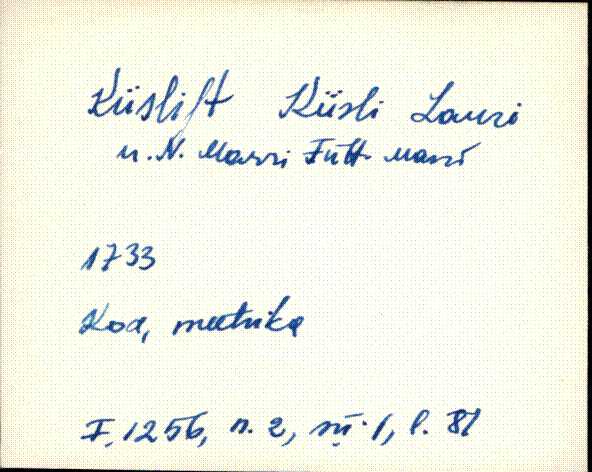 Küslift Küsli Lauri
u. N. Marri Tütt. Marri
1733
Koa, meetrika
F. 1256, n. 2, sü. 1, l. 81